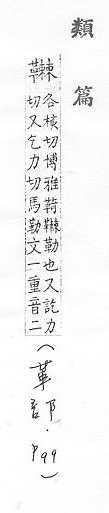 類篇
䩯各核切博雅䩯勒也又訖力
切又乞力切馬勒文一重音二
（革部．P99）